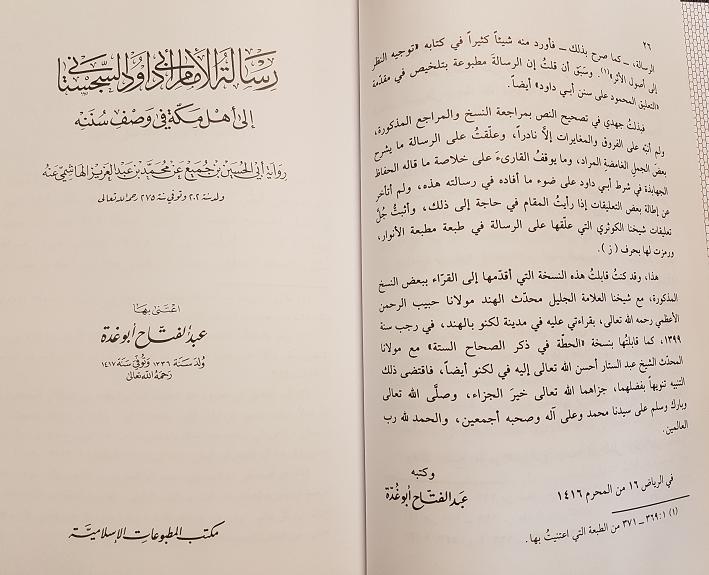 ٢٦
الرسالة ـ كما صرح بذلك ـ فأورد منه شيئاً كثيراً في كتابه «توجيه النظر
إلى أصول الأثر»(١). وسَبَق أن قلتُ إن الرسالة مطبوعة بتلخيص في مقدّمة
«التعليق المحمود على سنن أبي داود» أيضاً.
فبذلتُ جهدي في تصحيح النص بمراجعة النسخ والمراجع المذكورة،
ولم أنبّه على الفروق والمغايرات إلَّا نادراً، وعلَّقتُ على الرسالة ما يشرح
بعضَ الجملِ الغامضةِ المراد، وما يوقفُ القارىءَ على خلاصة ما قاله الحفاظ
الجهابذة في شرط أبي داود على ضوء ما أفاده في رسالته هذه، ولم أتأخر
عن إطالة بعض التعليقات إذا رأيتُ المقام في حاجة إلى ذلك، وأثبتُّ جُلَّ
تعليقات شيخنا الكوثري التي علّقها على الرسالة في طبعة مطبعة الأنوار،
ورمزت لها بحرف (ز).
هذا، وقد كنتُ قابلتُ هذه النسخة التي أقدّمها إلى القرّاء ببعض النسخ
المذكورة، مع شيخنا العلامة الجليل محدّث الهند مولانا حبيب الرحمن
الأعظمي رحمه الله تعالى، بقراءتي عليه في مدينة لكنو بالهند، في رجب سنة
١٣٩٩، كما قابلتُها بنسخة «الحطّة في ذكر الصحاح الستة» مع مولانا
المحدّث الشيخ عبد الستار أحسن الله تعالى إليه في لكنو أيضاً، فاقتضى ذلك
التنبيه تنويهاً بفضلهما، جزاهما الله تعالى خيرَ الجزاء، وصلَّى الله تعالى
وبارك وسلم على سيدنا محمد وعلى آله وصحبه أجمعين، والحمد لله رب
العالمين.
وكتبه
في الرياض ١٦ من المحرم ١٤١٦
عبد الفتاح أبو غُدّة
(١) ١:٣٦٩ ـ ٣٧١ من الطبعة التي اعتنيتُ بها.
رسالة الإمام أبي داود السجستاني
إلى أهل مكة في وصف سننه
رواية أبي الحسين بن جميع عن محمد بن عبد العزيز الهاشمي عنه
ولد سنة ٢٠٢ وتوفي سنة ٢٧٥ رحمه الله تعالى
اعتنى بها
عبد الفتاح أبو غدة
ولد سنة ١٣٣٦ وتوفي سنة ١٤١٧
رحمه الله تعالى
مكتب المطبوعات الإسلامية